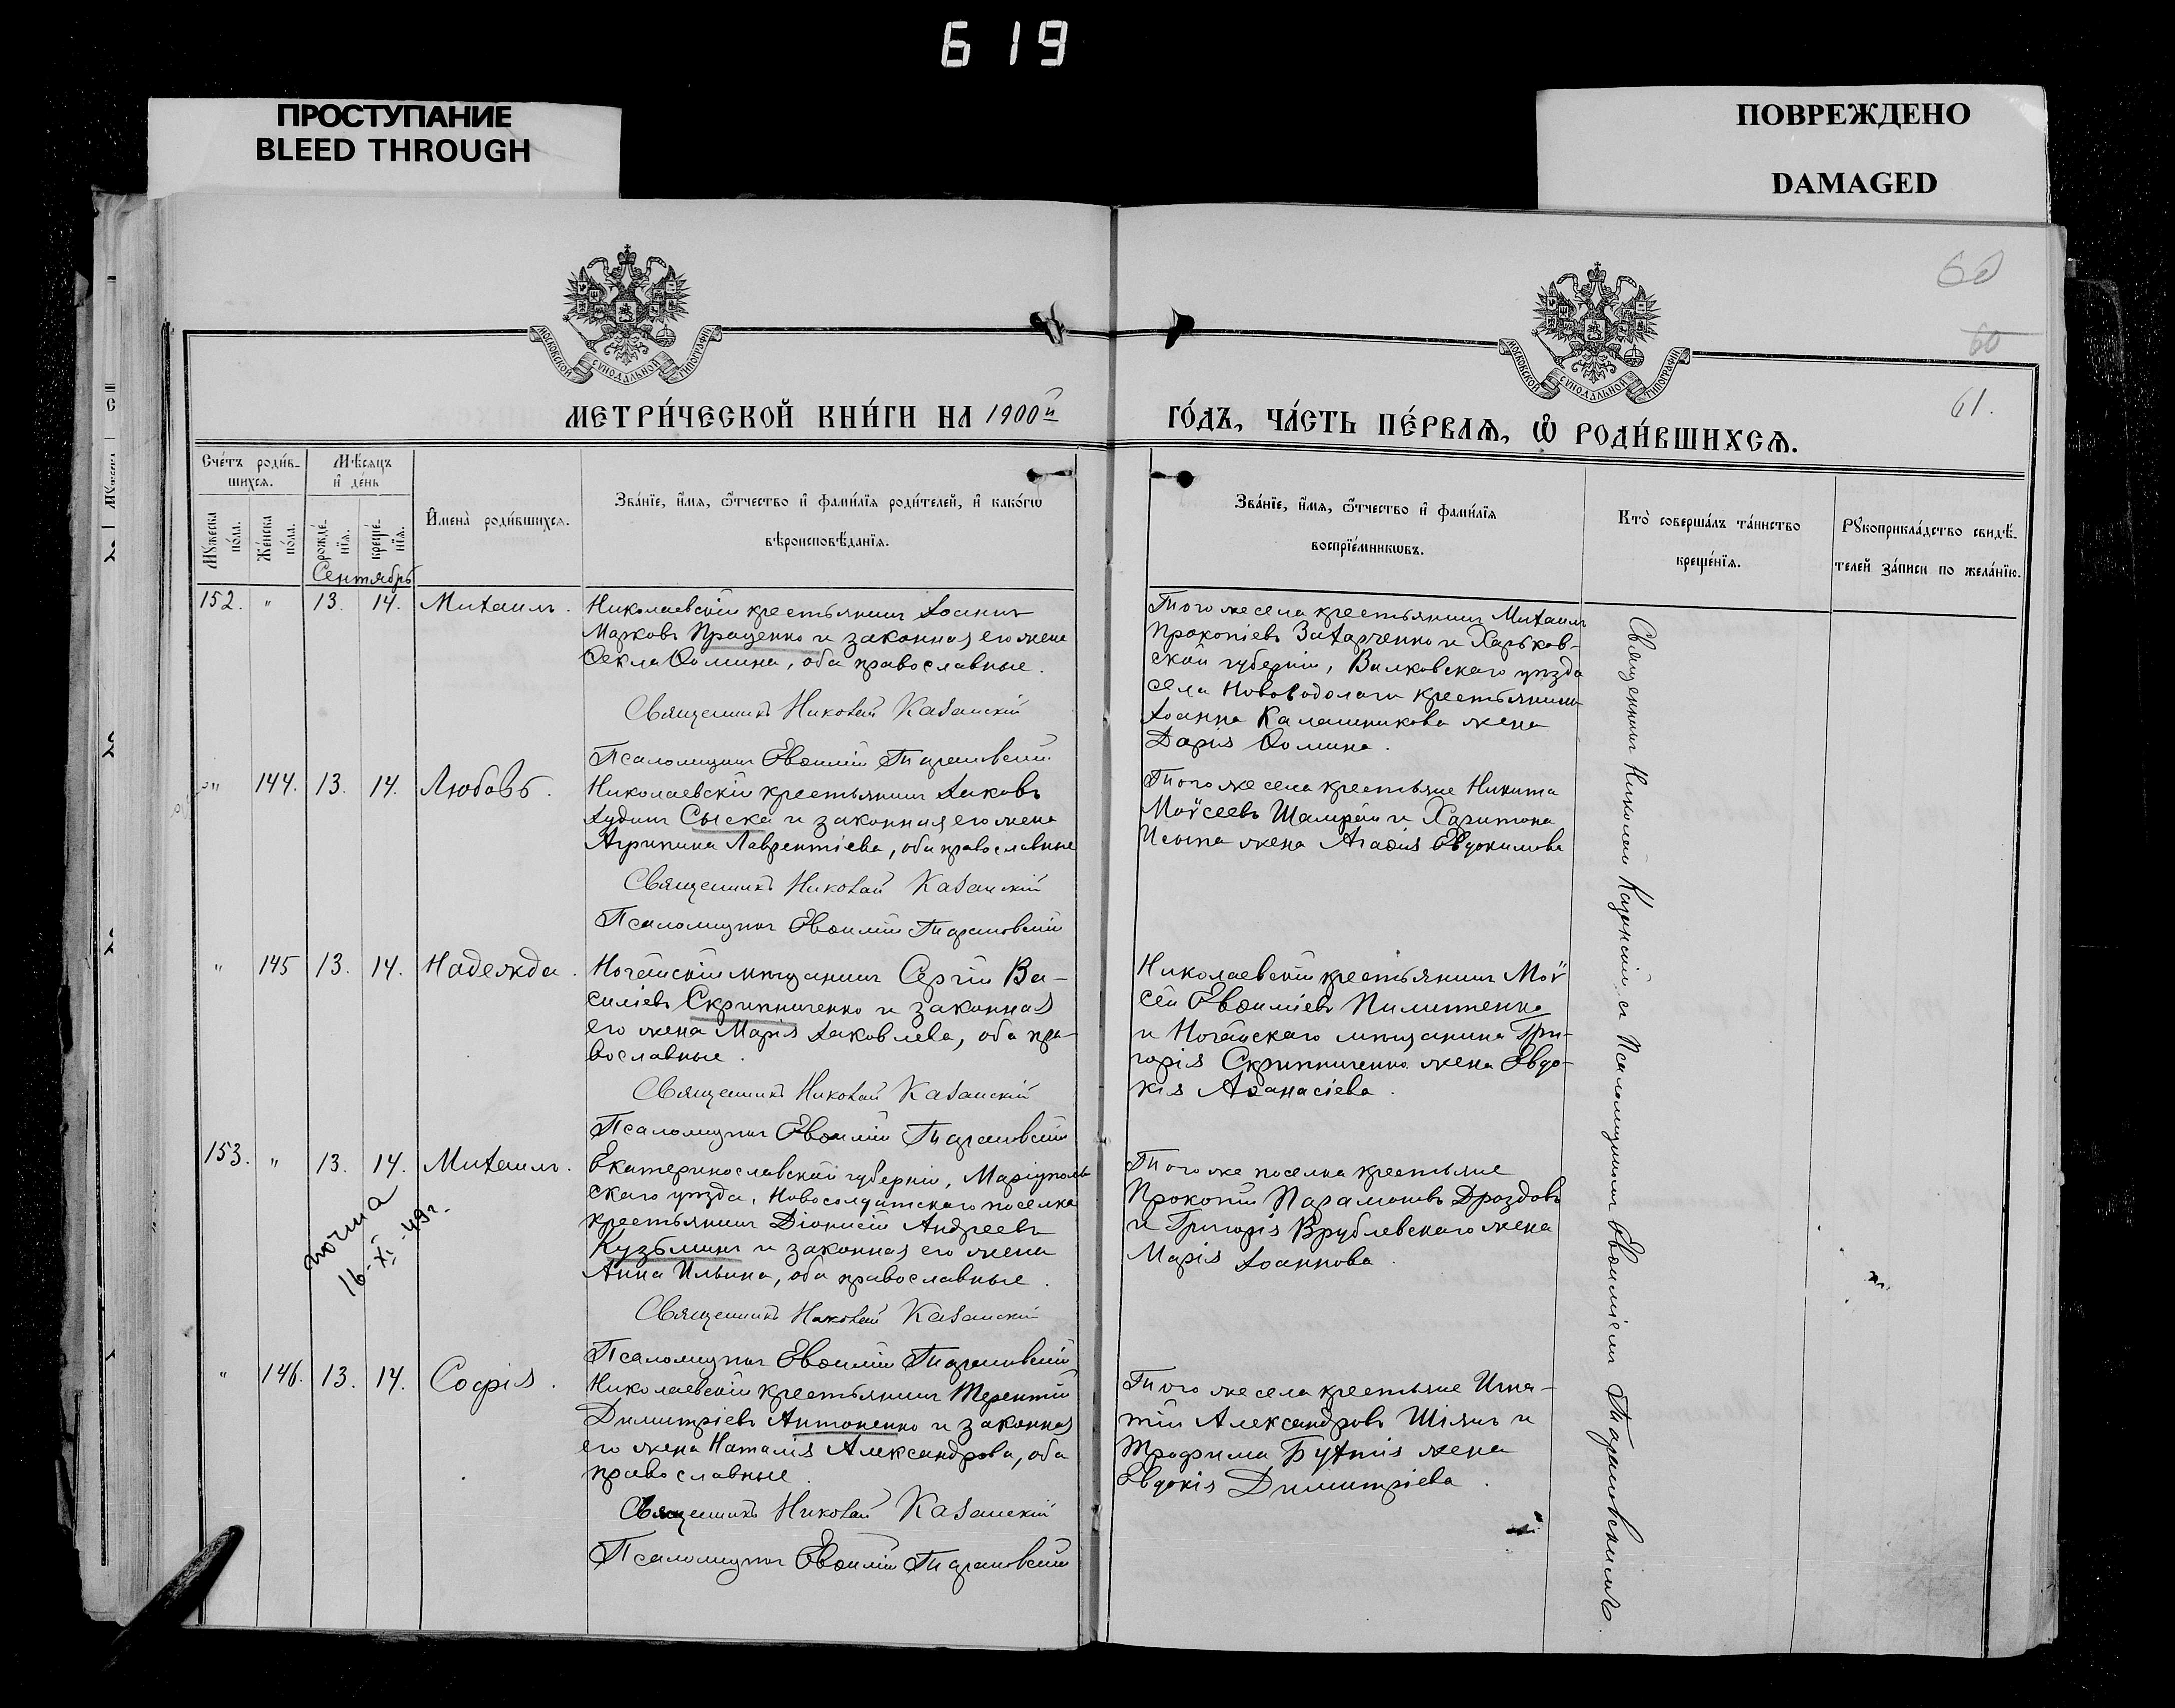 619
ПРОСТУПАНИЕ
BLEED THROUGH
ПОВРЕЖДЕНО
DAMAGED
60
60
61.
МОСКОВСКОЙ СѴНОДАЛЬНОЙ ТИПОГРАФІИ
МОСКОВСКОЙ СѴНОДАЛЬНОЙ ТИПОГРАФІИ
МЕТРИ́ЧЕСКОЙ КНИ́ГИ НА 1900й
ГО́ДЪ, ЧА́СТЬ ПЕ́РВАѦ, Ѽ РОДИ́ВШИХСѦ.
Сче́тъ роди́в-
шихсѧ.
Мѣ́сѧцъ
и҆ де́нь
Мꙋ́жеска по́ла.
Же́нска по́ла.
рожде́-нїѧ.
креще́-нїѧ.
И҆мена̀ роди́вшихсѧ.
Зва́нїе, и҆́мѧ, ѻ҆́тчество и҆ фами́лїѧ роди́телей, и҆ како́гѡ
вѣроисповѣ́данїѧ.
Зва́нїе, и҆́мѧ, ѻ҆́тчество и҆ фами́лїѧ
воспрїе́мникѡвъ.
Кто̀ соверша́лъ та́инство
креще́нїѧ.
Рꙋкоприкла́дство свидѣ́-
телей за́писи по жела́нїю.
Сентябрь
152. " 13. 14. Михаилъ.
Николаевскій крестьянинъ Іоаннъ
Марковъ Проценко и законная его жена
Ѳекла Ѳомина, оба православные.
Священникъ Николай Казанскій
Псаломщикъ Евѳимій Тарановскій
Того же села крестьянинъ Михаилъ
Прокопіевъ Захарченко и Харьков-
ской губерніи, Валковскаго уѣзда
села Нововодолаги крестьянина
Іоанна Калашникова жена
Дарія Ѳомина.
" 144. 13. 14. Любовь.
Николаевскій крестьянинъ Іаковъ
Іудинъ Сыска и законная его жена
Агрипина Лаврентіева, оба православные
Священникъ Николай Казанскій
Псаломщикъ Евѳимій Тарановскій
Того же села крестьяне Никита
Моѵсеевъ Шамрай и Харитона
жена Агаѳія Евдокимова
" 145 13. 14. Надежда.
Ногайскій мѣщанинъ Сергій Ва-
силіевъ Скрипниченко и законная
его жена Марія Іаковлева, оба пра-
вославные.
Священникъ Николай Казанскій
Псаломщикъ Евѳимій Тарановскій
Николаевскій крестьянинъ Моѵ
сей Евѳиміевъ Пилипенко
и Ногайскаго мѣщанина Гри-
горія Скрипниченко жена Евдо-
кія Аѳанасіева.
153. " 13. 14. Михаилъ.
16-XI-49г.
Екатеринославской губерніи, Маріуполь
скаго уѣзда, Новосолдатскаго поселка
крестьянинъ Діонисій Андреевъ
Кузьминъ и законная его жена
Анна Ильина, оба православные.
Священникъ Николай Казанскій
Псаломщикъ Евѳимій Тарановскій
Того же поселка крестьяне
Прокопій Парамоновъ Дроздовъ
и Григорія Врублевскаго жена
Марія Іоаннова.
" 146. 13. 14. Софія.
Николаевскій крестьянинъ Терентій
Димитріевъ Антоненко и законная
его жена Наталія Александрова, оба
православные.
Священникъ Николай Казанскій
Псаломщикъ Евѳимій Тарановскій
Того же села крестьяне Игна-
тій Александровъ Шіянъ и
Трофима жена
Евдокія Димитріева.
Священникъ Николай Казанскій съ Псаломщикомъ Евѳиміемъ Тарановскимъ.